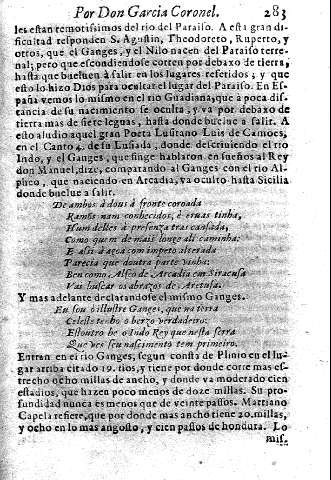 Por Don Garcia Coronel. 283
les estan remotissimos del rio del Paraiso. A esta gran di-
ficultad responden S. Agustin, Theodoreto, Ruperto, y
otros, que el Ganges, y el Nilo nacen del Paraiso terre-
nal; pero que escondiendose corren por debaxo de tierra,
hasta que bueluen à salir en los lugares referidos; y que
esto lo hizo Dios para ocultar el lugar del Paraiso. En Es-
paña vemos lo mismo en el rio Guadiana, que à poca dis-
tancia de su nacimiento se oculta; y va por debaxo de
tierra mas de siete leguas, hasta donde buelue a salir. A
esto aludio aquel gran Poeta Lusitano Luis de Camoes,
en el Canto 4. de su Lusiada, donde descriuiendo el rio
Indo, y el Ganges, que finge hablaron en sueños al Rey
don Manuel, dize, comparando al Ganges con el rio Al-
pheo, que naciendo en Arcadia, va oculto hasta Sicilia
donde buelue a salir.
De ambos à dous à fronte coroada
Ramos nam conhecidos, è eruas tinha,
Hum delles à presença traz cansada,
Como quem de mais longe ali caminha:
E assi à agoa com impeto alterada
Parecia que doutra parte vinha:
Ben como Alfeo de Arcadia em Siracusa
Vai buscar os abraços de Aretusa.
Y mas adelante declarandose el mismo Ganges.
Eu sou o illustre Ganges, que na terra
Celeste tenho o berço verdadeiro:
Estoutro he o Indo Rey que nesta serra
Que ves seu nascimento tem primeiro.
Entran en el rio Ganges, segun consta de Plinio en el lu-
gar arriba citado 19. rios, y tiene por donde corre mas es-
trecho ocho millas de ancho, y donde va moderado cien
estadios, que hazen poco menos de doze millas. Su pro-
fundidad nunca es menos que de veinte passos. Marciano
Capela refiere, que por donde mas ancho tiene 20. millas,
y ocho en lo mas angosto, y cien passos de hondura. Lo
mis-